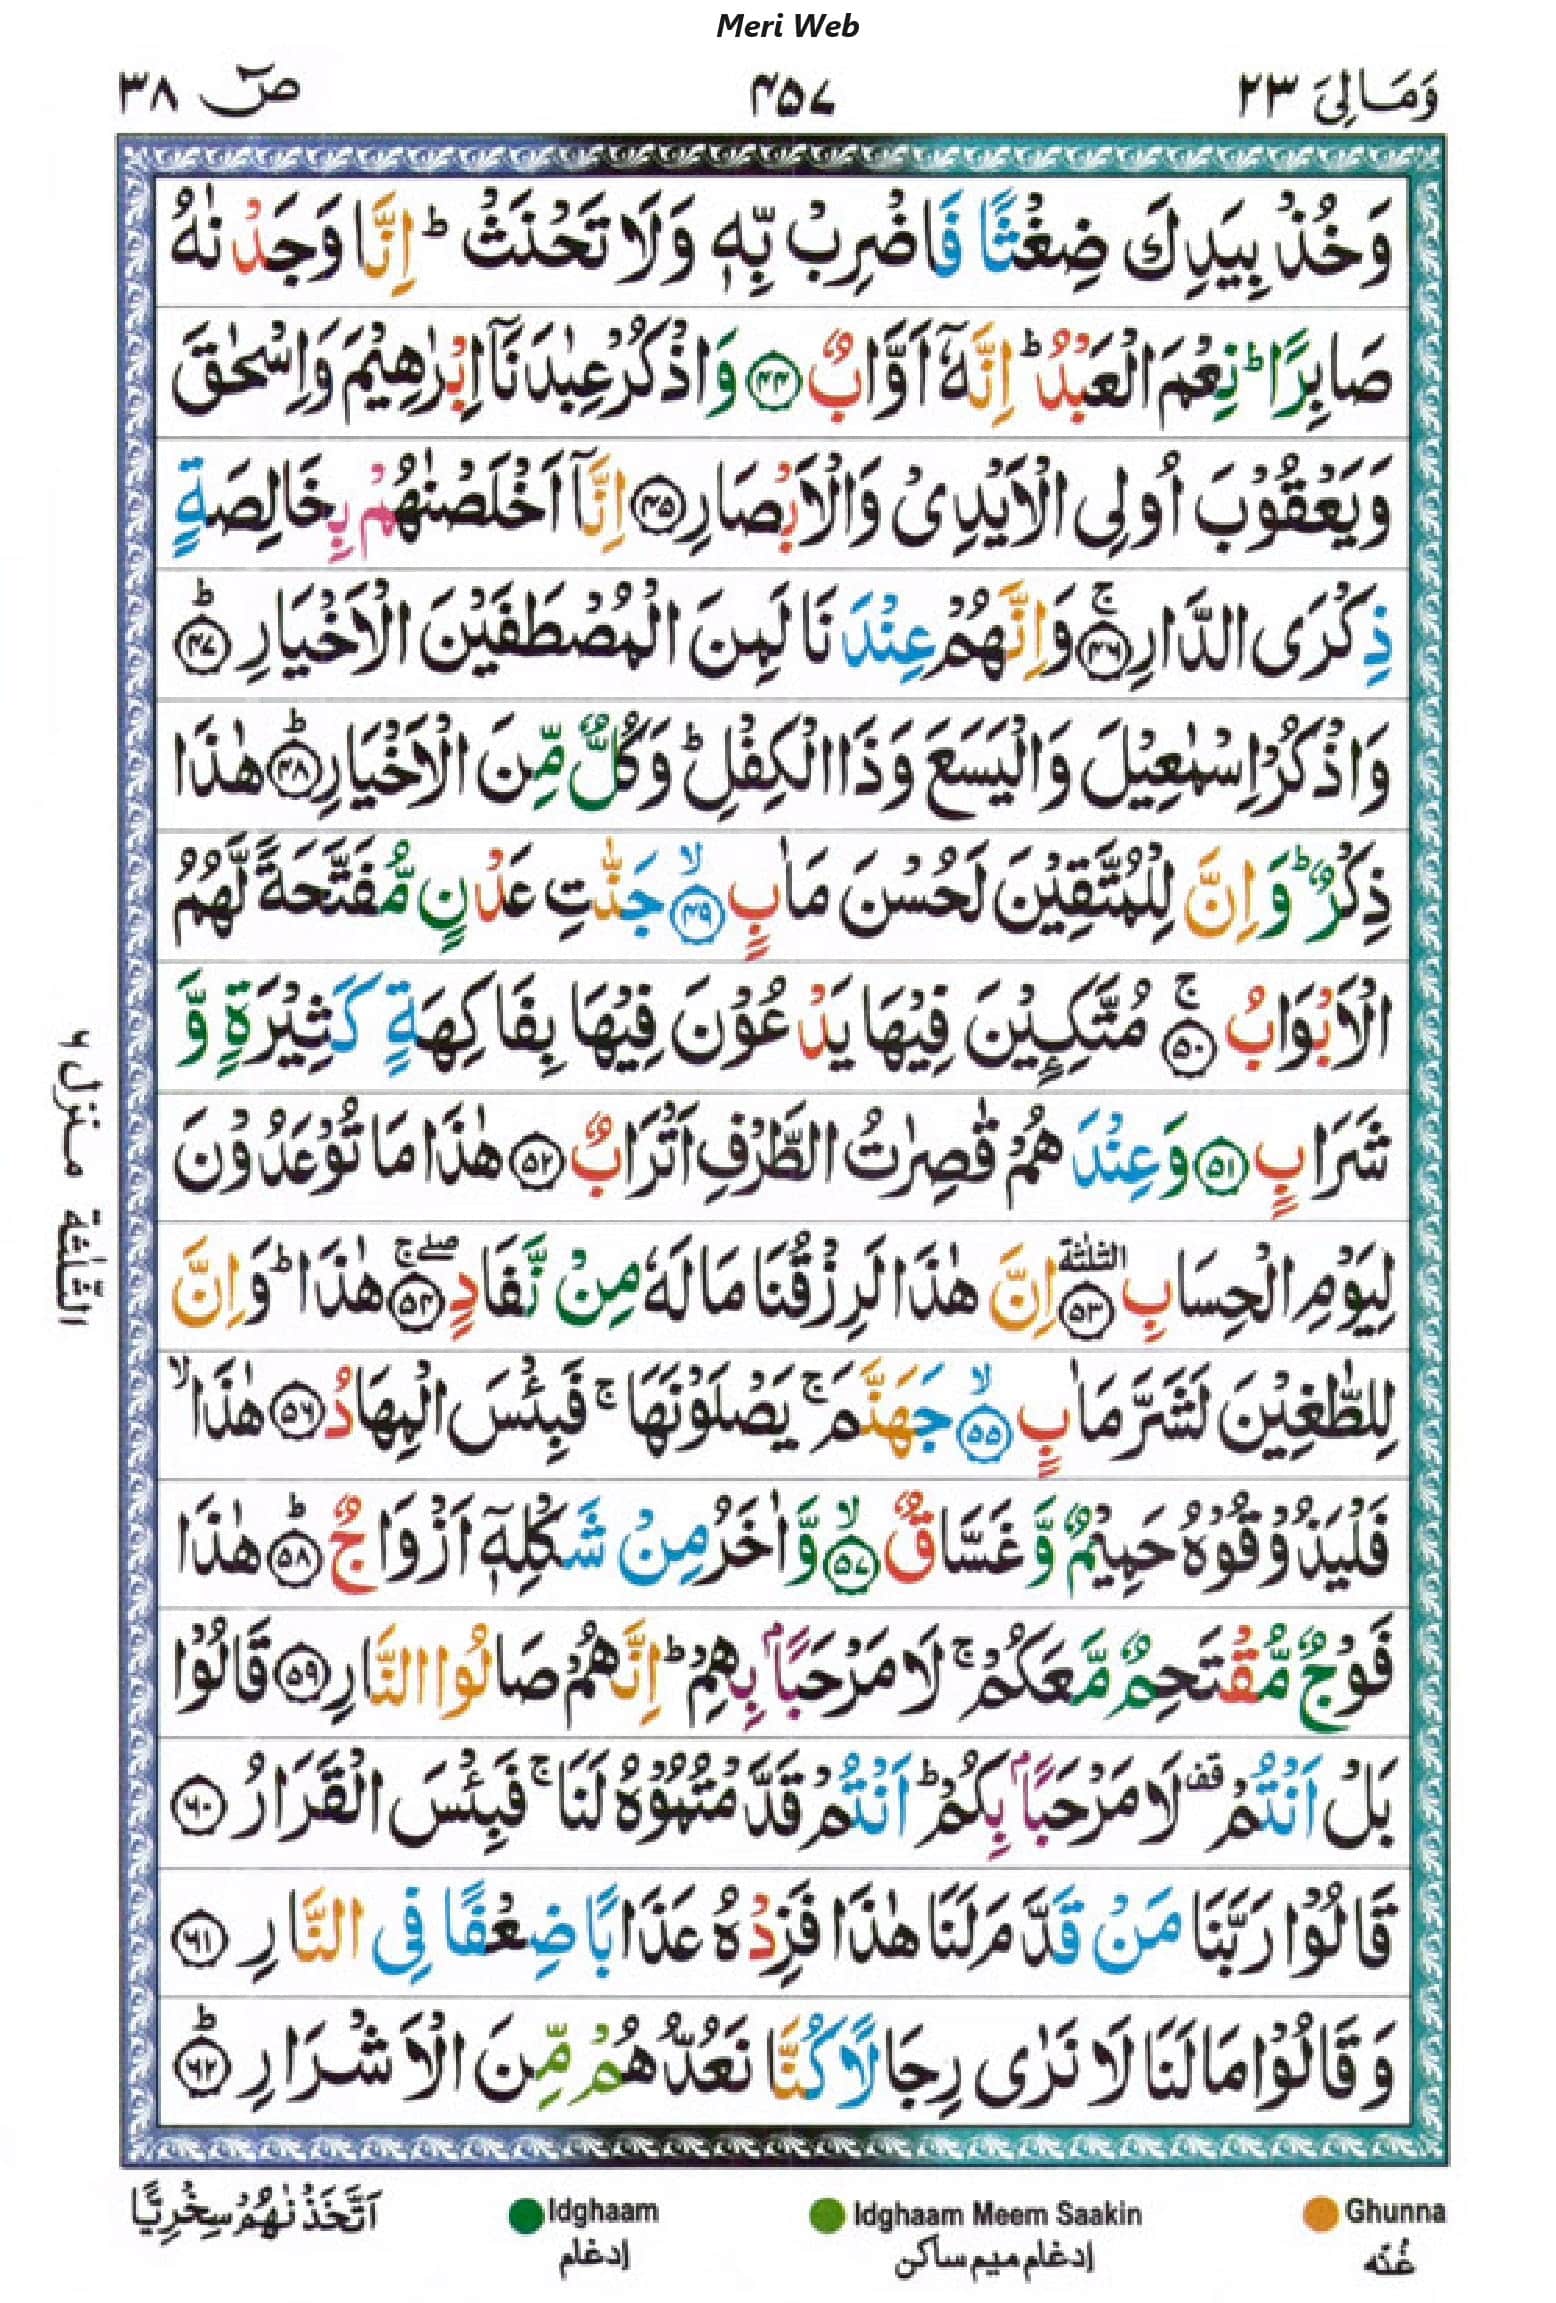 Meri Web
وَمَالِیَ ۲۳
۴۵۷
صٓ ۳۸
وَخُذْ بِیَدِكَ ضِغْثًا فَاضْرِبْ بِّهٖ وَلَا تَحْنَثْ ؕ اِنَّا وَجَدْنٰهُ
صَابِرًا ؕ نِعْمَ الْعَبْدُ ؕ اِنَّهٗۤ اَوَّابٌ ﴿۴۴﴾ وَاذْكُرْ عِبٰدَنَاۤ اِبْرٰهِیْمَ وَاِسْحٰقَ
وَیَعْقُوْبَ اُولِی الْاَیْدِیْ وَالْاَبْصَارِ ﴿۴۵﴾ اِنَّاۤ اَخْلَصْنٰهُمْ بِخَالِصَةٍ
ذِكْرَی الدَّارِ ﴿۴۶﴾ۚ وَاِنَّهُمْ عِنْدَنَا لَمِنَ الْمُصْطَفَیْنَ الْاَخْیَارِ ﴿۴۷﴾ؕ
وَاذْكُرْ اِسْمٰعِیْلَ وَالْیَسَعَ وَذَا الْكِفْلِ ؕ وَكُلٌّ مِّنَ الْاَخْیَارِ ﴿۴۸﴾ؕ هٰذَا
ذِكْرٌ ؕ وَاِنَّ لِلْمُتَّقِیْنَ لَحُسْنَ مَاٰبٍ ﴿۴۹﴾ۙ جَنّٰتِ عَدْنٍ مُّفَتَّحَةً لَّهُمُ
الْاَبْوَابُ ﴿۵۰﴾ۚ مُتَّكِـِٕیْنَ فِیْهَا یَدْعُوْنَ فِیْهَا بِفَاكِهَةٍ كَثِیْرَةٍ وَّ
شَرَابٍ ﴿۵۱﴾ وَعِنْدَهُمْ قٰصِرٰتُ الطَّرْفِ اَتْرَابٌ ﴿۵۲﴾ هٰذَا مَا تُوْعَدُوْنَ
لِیَوْمِ الْحِسَابِ ﴿۵۳﴾ الثلٰثة اِنَّ هٰذَا لَرِزْقُنَا مَا لَهٗ مِنْ نَّفَادٍ ﴿۵۴﴾ۖۚ هٰذَا ؕ وَاِنَّ
لِلطّٰغِیْنَ لَشَرَّ مَاٰبٍ ﴿۵۵﴾ۙ جَهَنَّمَ ۚ یَصْلَوْنَهَا ۚ فَبِئْسَ الْمِهَادُ ﴿۵۶﴾ هٰذَا ۙ
فَلْیَذُوْقُوْهُ حَمِیْمٌ وَّغَسَّاقٌ ﴿۵۷﴾ۙ وَّاٰخَرُ مِنْ شَكْلِهٖۤ اَزْوَاجٌ ﴿۵۸﴾ؕ هٰذَا
فَوْجٌ مُّقْتَحِمٌ مَّعَكُمْ ۚ لَا مَرْحَبًۢا بِهِمْ ؕ اِنَّهُمْ صَالُوا النَّارِ ﴿۵۹﴾ قَالُوْا
بَلْ اَنْتُمْ قف لَا مَرْحَبًۢا بِكُمْ ؕ اَنْتُمْ قَدَّمْتُمُوْهُ لَنَا ۚ فَبِئْسَ الْقَرَارُ ﴿۶۰﴾
قَالُوْا رَبَّنَا مَنْ قَدَّمَ لَنَا هٰذَا فَزِدْهُ عَذَابًا ضِعْفًا فِی النَّارِ ﴿۶۱﴾
وَقَالُوْا مَا لَنَا لَا نَرٰی رِجَالًا كُنَّا نَعُدُّهُمْ مِّنَ الْاَشْرَارِ ﴿۶۲﴾ؕ
الثّلٰثة منزل ۶
اَتَّخَذْنٰهُمْ سِخْرِیًّا
Idghaam
ادغام
Idghaam Meem Saakin
ادغام میم ساکن
Ghunna
غُنّه